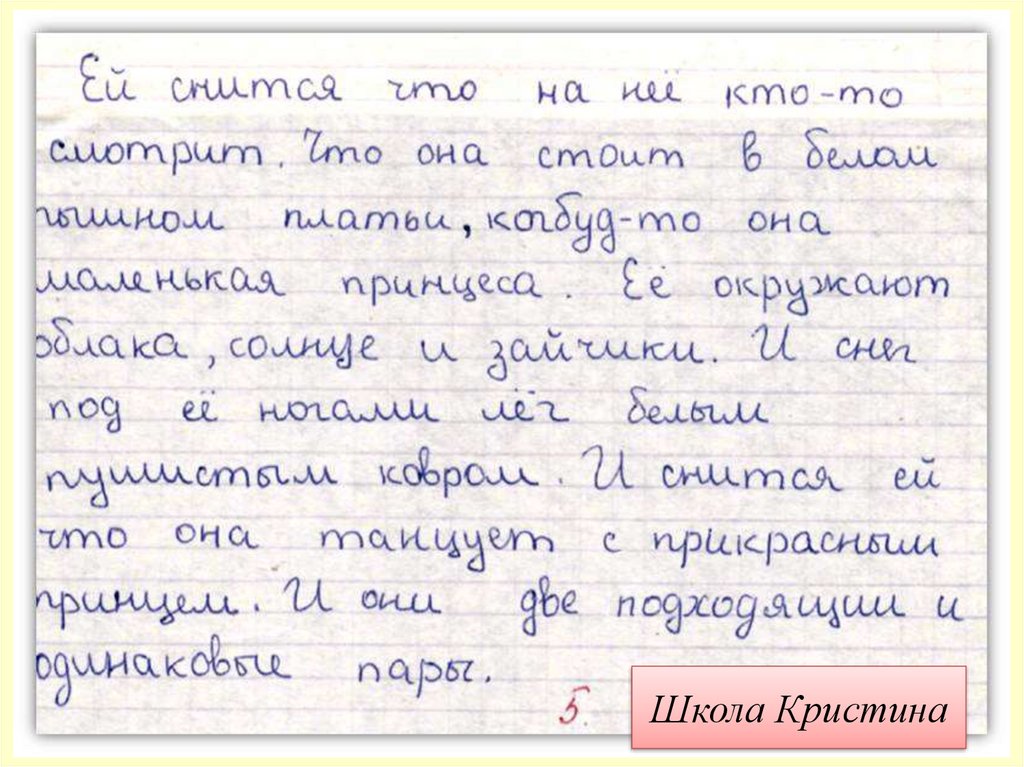 Ей снится что на неё кто-то
смотрит. Что она стоит в белом
пышном платьи, когбуд-то она
маленькая принцеса. Её окружают
облака, солнце и зайчики. И снег
под её ногами лёг белым
пушистым ковром. И снится ей
что она танцует с прикрасным
принцем. И они две подходящии и
одинаковые пары.
5.
Школа Кристина